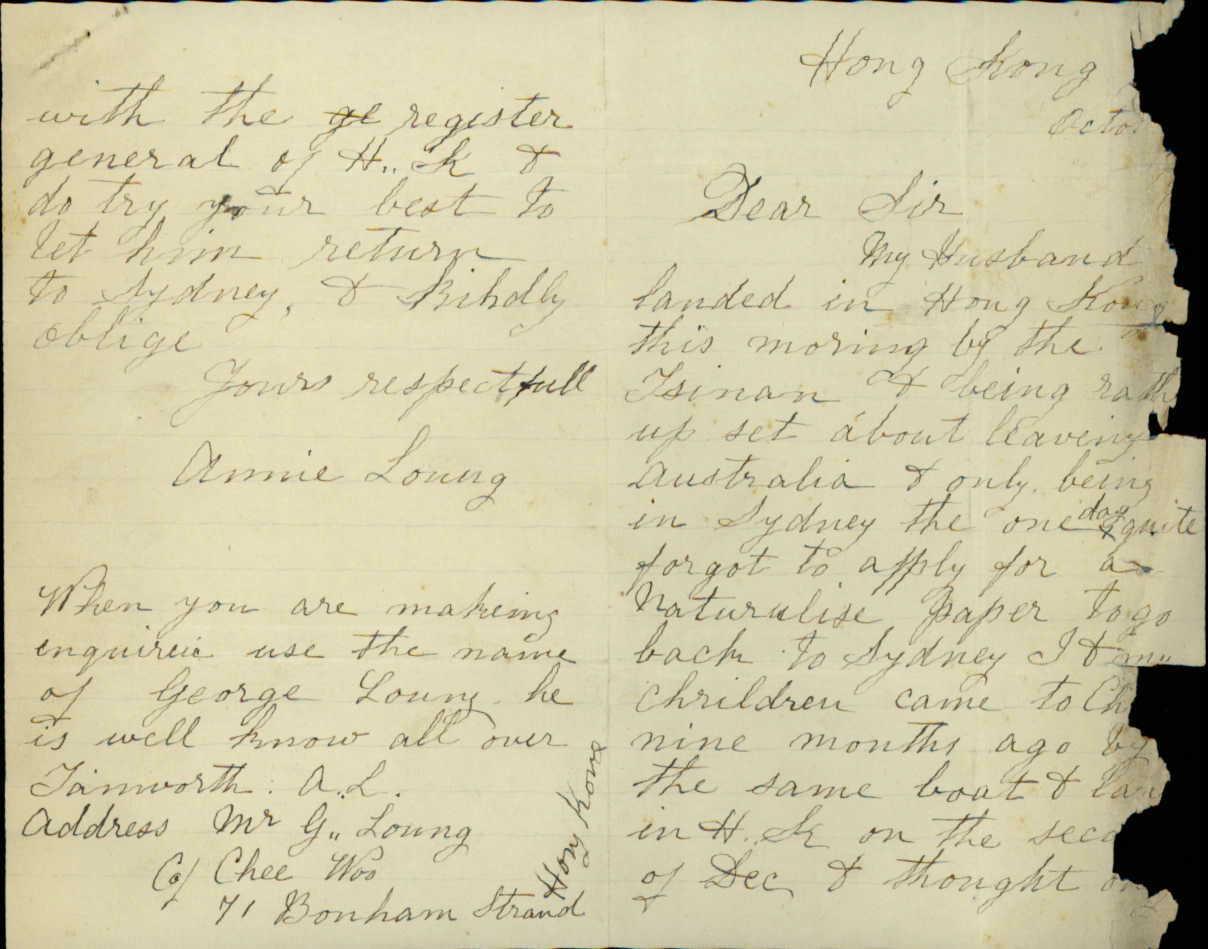 Hong Kong
Octo
Dear Sir
My Husband
landed in Hong Kong
this moring by the
Tsinan & being rath
up set about leaveing
Australia & only being
in Sydney the one day quite
forgot to apply for a
Naturulise Paper to go
back to Sydney I & my
chrildren came to Ch
nine months ago by
the same boat & lan
in H.. K on the seco
of Dec & thought on
with the ge register
general of H.. K &
do try your best to
let him return
to Sydney, & Kihdly
oblige
Yours respectfull
Annie Loung
When you are makeing
enquireie use the name
of George Loung he
is well know all over
Tamworth. A.L.
Address Mr G.. Loung
C/o Chee Woo
71 Bonham Strand
Hong Kong